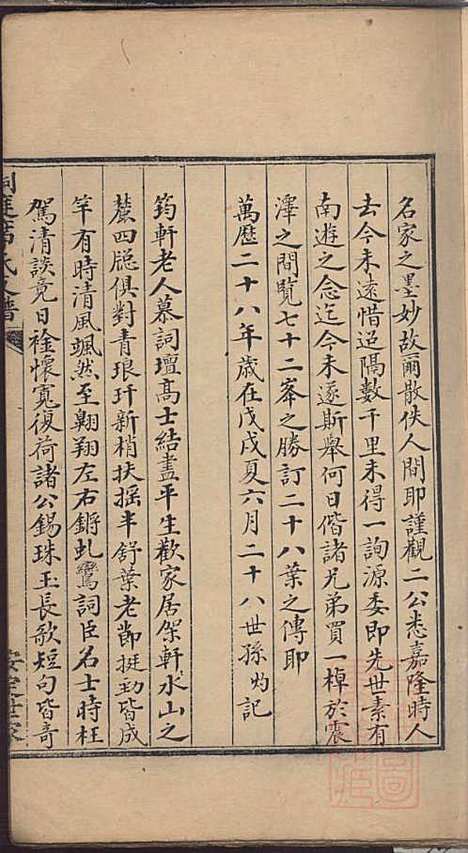 名家之墨妙故爾散佚人間耶謹觀二公悉嘉隆時人
去今未遠惜迢隔數千里未得一詢源委即先世素有
南遊之念迄今未遂斯舉何日偕諸兄弟買一棹於震
澤之間覽七十二峯之勝訂二十八葉之傳耶
萬歷二十八年歲在戊戌夏六月二十八世孫灼記
筠軒老人慕詞壇高士結盡平生歡家居傑軒水山之
麓四牕俱對青琅玕新梢扶摇半舒葉老節挺勁皆成
竿有時清風颯然至翺翔左右鏘虬鸞詞臣名士時枉
駕清談竟日袷懷寬復荷諸公錫珠玉長歌短句皆竒
洞庭席氏支譜
安定世家